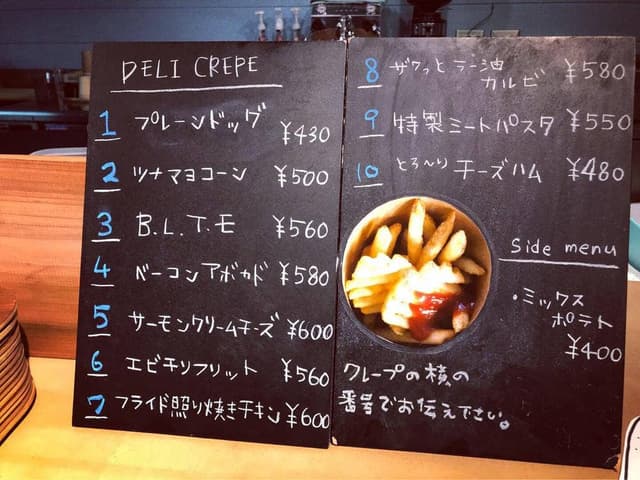 DELI CREPE
1 プレーンドッグ ¥430
2 ツナマヨコーン ¥500
3 B.L.T.E ¥560
4 ベーコンアボカド ¥580
5 サーモンクリームチーズ ¥600
6 エビチリフリット ¥560
7 フライド照り焼きチキン ¥600
8 ザクっとラー油
カルビ ¥580
9 特製ミートパスタ ¥550
10 とろ〜りチーズハム ¥480
Side menu
・ミックス
ポテト
¥400
クレープの横の
番号でお伝え下さい。